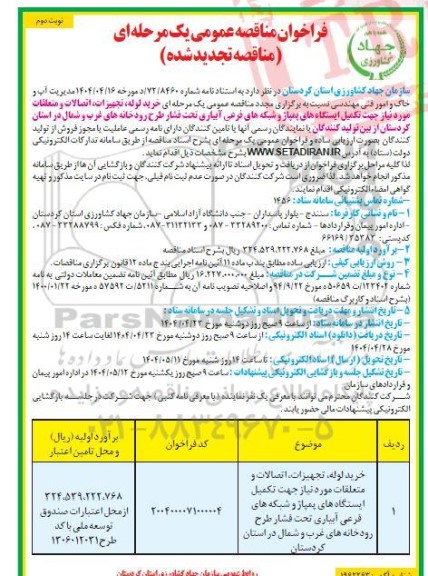 نوبت دوم
فراخوان مناقصه عمومی یک مرحله‌ای
(مناقصه تجدید شده)
جهاد کشاورزی
سازمان جهاد کشاورزی استان کردستان در نظر دارد به استناد نامه شماره ۷۲/۸۴۶۰/د مورخه ۱۴۰۴/۰۴/۱۶ مدیریت آب و
خاک و امور فنی مهندسی نسبت به برگزاری مجدد مناقصه عمومی یک مرحله‌ای خرید لوله، تجهیزات، اتصالات و متعلقات
مورد نیاز جهت تکمیل ایستگاه های پمپاژ و شبکه های فرعی آبیاری تحت فشار طرح رودخانه های غرب و شمال در استان
کردستان از بین تولید کنندگان یا نمایندگان رسمی آنها یا تامین کنندگان دارای نامه رسمی عاملیت یا مجوز فروش از تولید
کنندگان بصورت ارزیابی ساده و فراخوان عمومی یک مرحله‌ای بشرح اسناد مناقصه از طریق سامانه تدارکات الکترونیکی
دولت (ستاد) به آدرس WWW.SETADIRAN.IR بشرح مشخصات ذیل اقدام نماید.
لذا کلیه مراحل برگزاری فراخوان از دریافت و تحویل اسناد تا ارائه پیشنهاد شرکت کنندگان و بازگشایی آن ها از طریق سامانه
مذکور انجام خواهد شد. لذا ضروری است شرکت کنندگان در صورت عدم ثبت نام قبلی، جهت ثبت نام در سایت مذکور و تهیه
گواهی امضاء الکترونیکی اقدام نمایند.
-شماره تماس پشتیبانی سامانه ستاد : ۱۴۵۶
۱- نام و نشانی کارفرما : سنندج - بلوار پاسداران - جنب دانشگاه آزاد اسلامی - سازمان جهاد کشاورزی استان کردستان
- اداره امور پیمان و قراردادها - شماره تماس
کدپستی: ۳۵۳۸۳ / ۶۶۱۶۹
۲- برآورد اولیه مناقصه : مبلغ ۳۲۴.۵۳۹.۲۲۲.۷۶۸ ریال بشرح اسناد مناقصه
۳- روش ارزیابی کیفی : ارزیابی ساده مطابق بند ب ماده ۱۱ آئین نامه اجرایی بند ج ماده ۱۲ قانون برگزاری مناقصات.
۴- نوع و مبلغ تضمین شرکت در مناقصه : مبلغ ۱۶.۲۲۷.۰۰۰.۰۰۰ ریال مطابق آئین نامه تضمین معاملات دولتی به نامه
شماره ۱۲۳۴۰۲/ت ۵۰۶۵۹ ه مورخ ۹۴/۹/۲۲ و اصلاحیه تصویب نامه آن به شماره ۵۲۱۱/ت ۵۷۵۹۲ ه مورخ ۱۴۰۰/۰۱/۲۲
(بشرح اسناد و کاربرگ مناقصه)
۵- تاریخ انتشار و مهلت دریافت و تحویل اسناد و تشکیل جلسه در سامانه ستاد :
تاریخ انتشار در سامانه ستاد: از ساعت ۹ صبح روز دوشنبه مورخ ۱۴۰۴/۰۴/۲۳
تاریخ دریافت (دانلود) اسناد الکترونیکی : از ساعت ۹ صبح روز دوشنبه مورخ ۱۴۰۴/۰۴/۲۳ لغایت ساعت ۱۴ روز شنبه
مورخ ۱۴۰۴/۰۴/۲۸
تاریخ تحویل (ارسال) اسناد الکترونیکی : تا ساعت ۱۴ روز شنبه مورخ ۱۴۰۴/۰۵/۱۱
تاریخ تشکیل جلسه و بازگشایی الکترونیکی پیشنهادات : ساعت ۹ صبح روز یکشنبه مورخ ۱۴۰۴/۰۵/۱۲ در اداره امور پیمان
و قراردادهای سازمان
شرکت کنندگان محترم می توانند با معرفی یک نفر نماینده (با معرفی نامه کتبی) جهت شرکت در جلسه بازگشایی
الکترونیکی پیشنهادات مالی حضور یابند.
ردیف | موضوع | کد فراخوان | برآورد اولیه (ریال) و محل تامین اعتبار
۱ | خرید لوله، تجهیزات، اتصالات و متعلقات مورد نیاز جهت تکمیل ایستگاه های پمپاژ و شبکه های فرعی آبیاری تحت فشار طرح رودخانه های غرب و شمال در استان کردستان | ۲۰۰۴۰۰۰۰۷۱۰۰۰۰۰۴ | ۳۲۴.۵۳۹.۲۲۲.۷۶۸ از محل اعتبارات صندوق توسعه ملی با کد طرح ۱۳۰۶۰۱۲۰۳۱
روابط عمومی سازمان جهاد کشاورزی استان کردستان